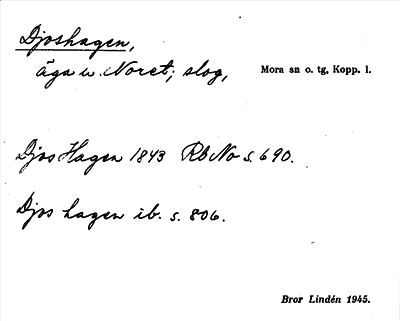 Djoshagen,
äga w. Noret; slog, Mora sn o. tg, Kopp. l.
Djos Hagen 1843 Rb No s. 690.
Djos hagen ib. s. 806.
Bror Lindén 1945.